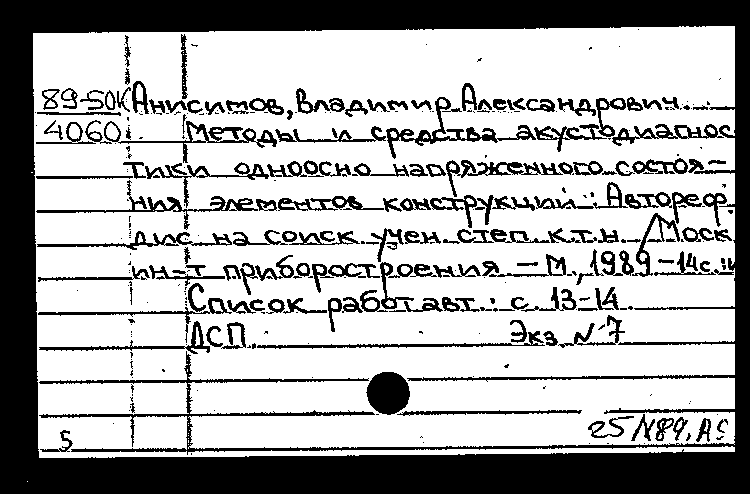 89-50К Анисимов, Владимир Александрович.
4060. Методы и средства акустодиагнос
тики одноосно напряженного состоя-
ния элементов конструкций : Автореф.
дис на соиск учен степ к.т.н. / Моск
ин-т приборостроения - М., 1989 - 14с. :и
Список работ авт. : с. 13-14.
ДСП. Экз. N 7
5